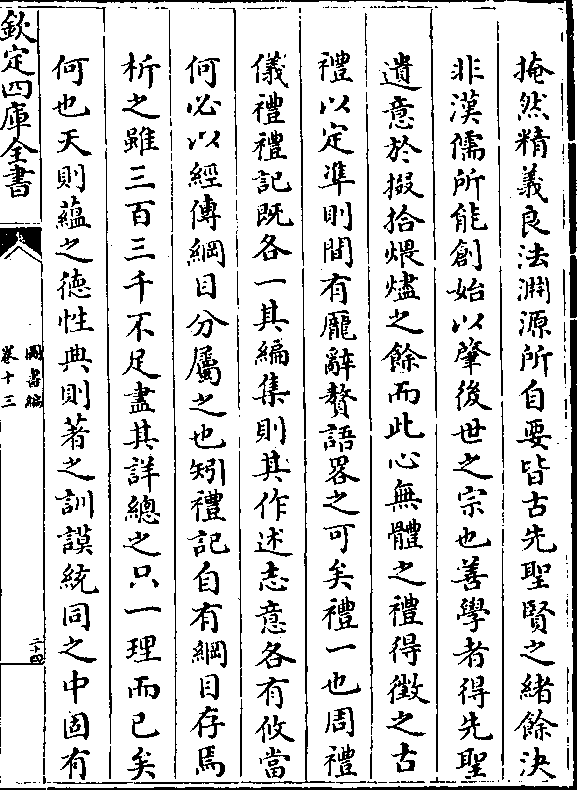 掩然精義良法淵源所自要皆古先聖賢之緒餘決
非漢儒所能創始以肇後世之宗也善學者得先聖
遺意於掇拾煨燼之餘而此心無體之禮得徵之古
禮以定準則間有龐辭贅語畧之可矣禮一也周禮
儀禮禮記既各一其編集則其作述志意各有攸當
何必以經傳綱目分屬之也矧禮記自有綱目存焉
析之雖三百三千不足盡其詳總之只一理而已矣
何也天則蘊之德性典則著之訓謨統同之中固有
欽定四庫全書
圖書編
卷十三
二十四